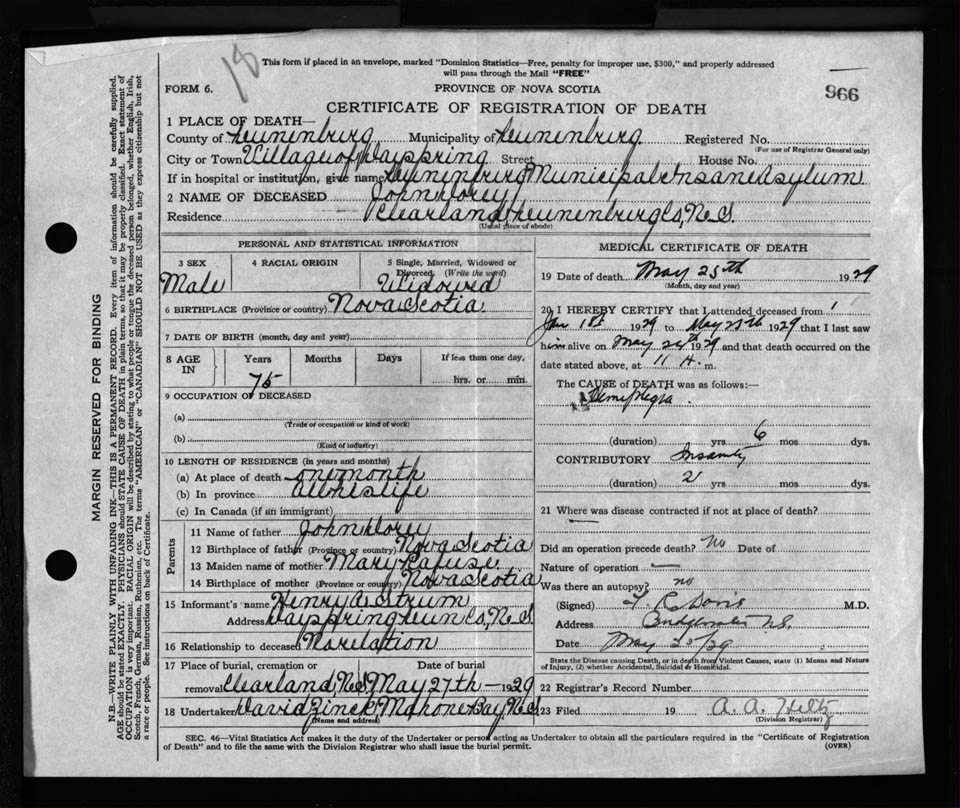 18
This form if placed in an envelope, marked "Dominion Statistics—Free, penalty for improper use, $300," and properly addressed
will pass through the Mail "FREE"
FORM 6.
PROVINCE OF NOVA SCOTIA
966
CERTIFICATE OF REGISTRATION OF DEATH
1 PLACE OF DEATH—
County of Lunenburg Municipality of Lunenburg Registered No.
(For use of Registrar General only)
City or Town Village of Dayspring Street House No.
If in hospital or institution, give name Lunenburg Municipal Insane Asylum
2 NAME OF DECEASED John
Residence Clearland Lunenburg Co, N.S.
(Usual place of abode)
PERSONAL AND STATISTICAL INFORMATION
3 SEX Male
4 RACIAL ORIGIN
5 Single, Married, Widowed or Divorced. (Write the word) Widowed
6 BIRTHPLACE (Province or country) Nova Scotia
7 DATE OF BIRTH (month, day and year)
8 AGE IN Years Months Days If less than one day,
75 hrs. or min.
9 OCCUPATION OF DECEASED
(a)
(Trade or occupation or kind of work)
(b)
(Kind of industry)
10 LENGTH OF RESIDENCE (in years and months)
(a) At place of death one month
(b) In province all his life
(c) In Canada (if an immigrant)
Parents
11 Name of father John
12 Birthplace of father (Province or country) Nova Scotia
13 Maiden name of mother Mary Rafuse
14 Birthplace of mother (Province or country) Nova Scotia
15 Informant's name Henry A Strum
Address Dayspring Lun Co, N.S.
16 Relationship to deceased No relation
17 Place of burial, cremation or removal Clearland, N.S. Date of burial May 27th - 1929
18 Undertaker David Zinck Mahone Bay N.S.
(Name and address)
MEDICAL CERTIFICATE OF DEATH
19 Date of death May 25th 1929
(Month, day and year)
20 I HEREBY CERTIFY that I attended deceased from
Jan 1st 1929 to May 25th 1929 that I last saw
him alive on May 24th 1929 and that death occurred on the
date stated above, at 11 A. m.
The CAUSE of DEATH was as follows:—
Hemiplegia
(duration) yrs 6 mos dys.
CONTRIBUTORY Insanity
(duration) 2 yrs mos dys.
21 Where was disease contracted if not at place of death?
Did an operation precede death? no Date of
Nature of operation —
Was there an autopsy? no
(Signed) Davis M.D.
Address Bridgewater N.S.
Date May
State the Disease causing Death, or in death from Violent Causes, state (1) Means and Nature
of Injury, (2) whether Accidental, Suicidal or Homicidal.
22 Registrar's Record Number
23 Filed 19 A. A. Hiltz
(Division Registrar)
SEC. 46—Vital Statistics Act makes it the duty of the Undertaker or person acting as Undertaker to obtain all the particulars required in the "Certificate of Registration
of Death" and to file the same with the Division Registrar who shall issue the burial permit.
(OVER)
MARGIN RESERVED FOR BINDING
N.B.—WRITE PLAINLY WITH UNFADING INK—THIS IS A PERMANENT RECORD. Every item of information should be carefully supplied.
AGE should be stated EXACTLY. PHYSICIANS should STATE CAUSE OF DEATH in plain terms, so that it may be properly classified. Exact statement of
OCCUPATION is very important. RACIAL ORIGIN will be described by stating to what people or tongue the deceased person belonged, whether English, Irish,
Scotch, French, German, Russian, Ruthenian, etc. The terms "AMERICAN" or "CANADIAN" SHOULD NOT BE USED as they express citizenship but not
a race or people. See instructions on back of Certificate.